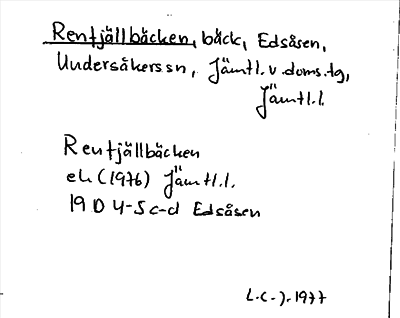 Rentjällbäcken, bäck, Edsåsen,
Undersåkers sn, Jämtl. v. doms. tg,
Jämtl. l.
Rentjällbäcken
ek (1976) Jämtl. l.
19 D 4-5 c-d Edsåsen
L.C-J. 1977